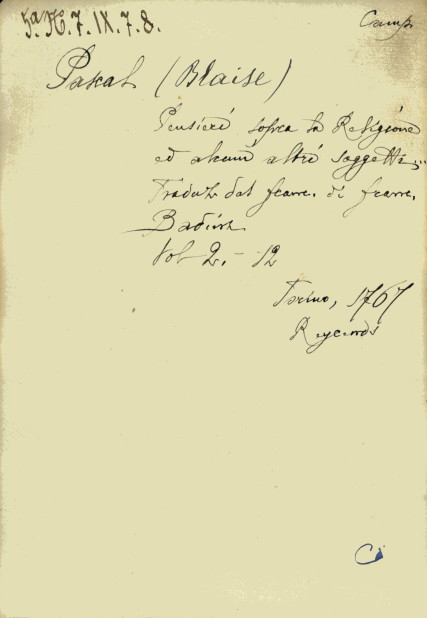 5ª H. 7. IX. 7. 8.
Camp.
Paskal (Blaise)
Pensieri sopra la Religione
ed alcuni altri soggetti...
Traduz dal franc. di franc.
Vol 2. - 12
Torino, 1767
Reycends